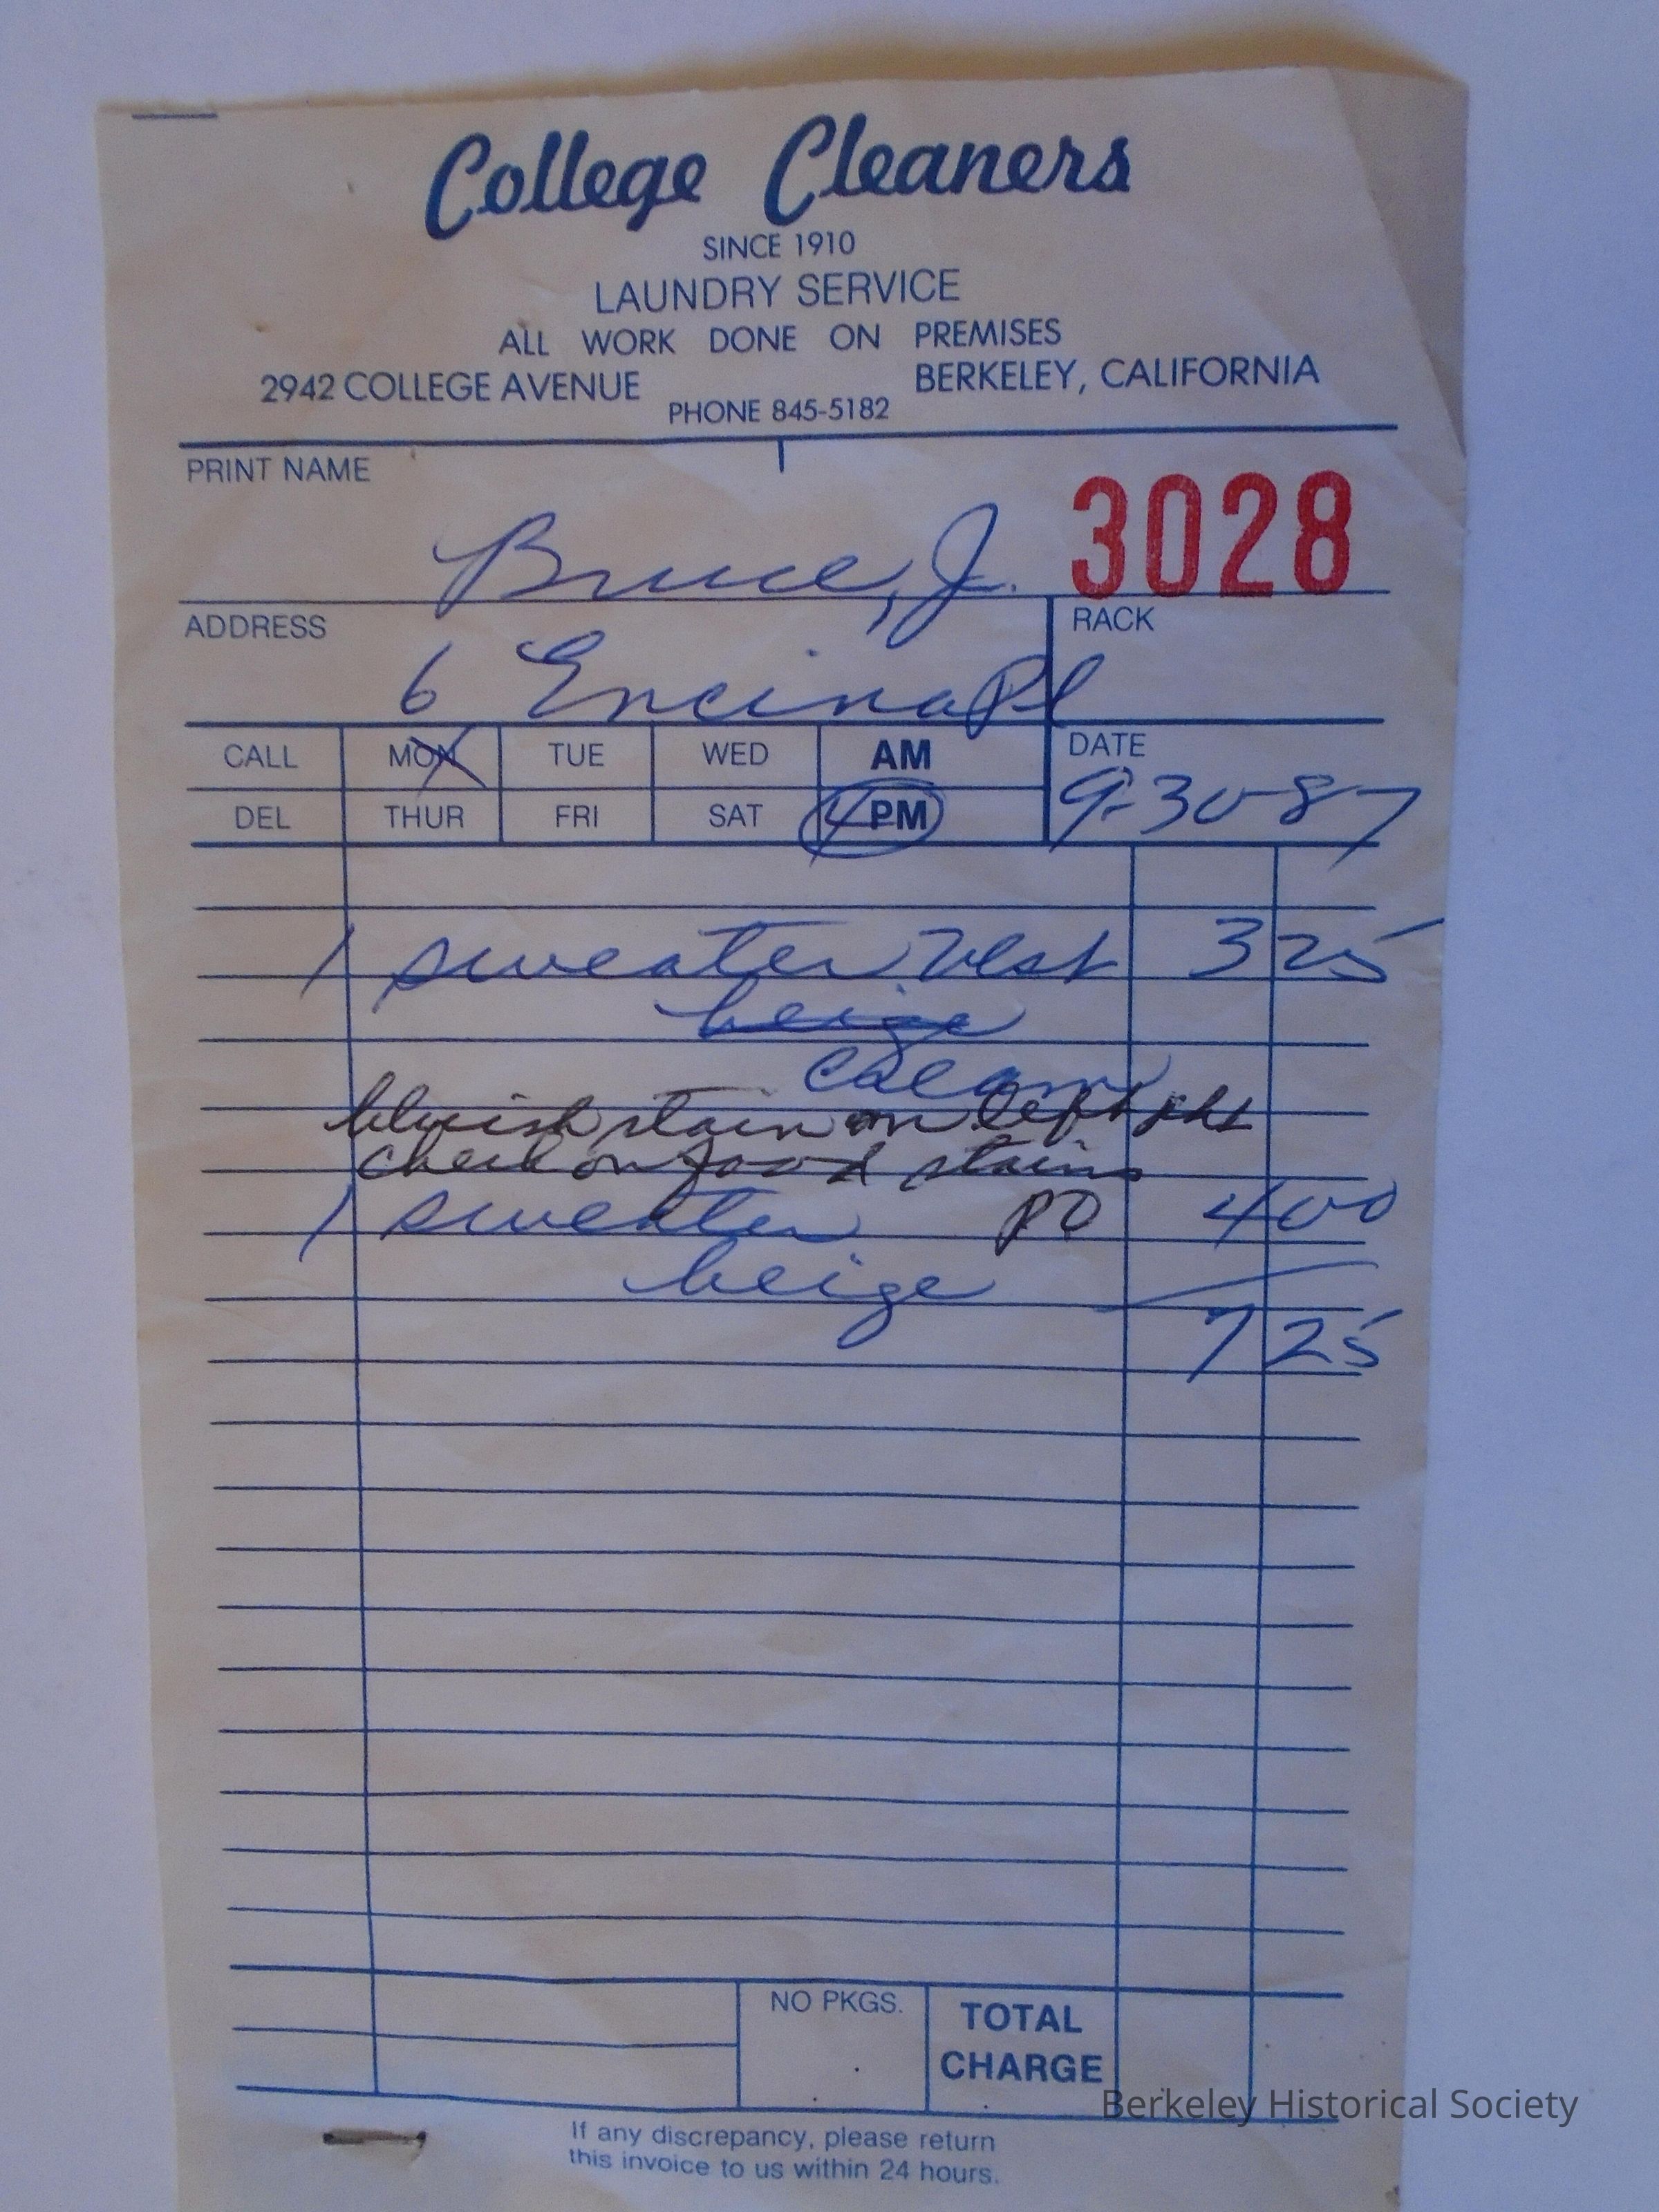 College Cleaners
SINCE 1910
LAUNDRY SERVICE
ALL WORK DONE ON PREMISES
2942 COLLEGE AVENUE BERKELEY, CALIFORNIA
PHONE 845-5182
PRINT NAME
Bruce, J. 3028
ADDRESS RACK
6 Encina Pl
CALL MON TUE WED AM DATE
DEL THUR FRI SAT 4 PM 9-30-87
1 sweater vest 3 25
beige
cream
bluish stain on left
check on food stains
1 sweater PD 4 00
beige
7 25
NO PKGS. TOTAL
CHARGE
Berkeley Historical Society
If any discrepancy, please return
this invoice to us within 24 hours.